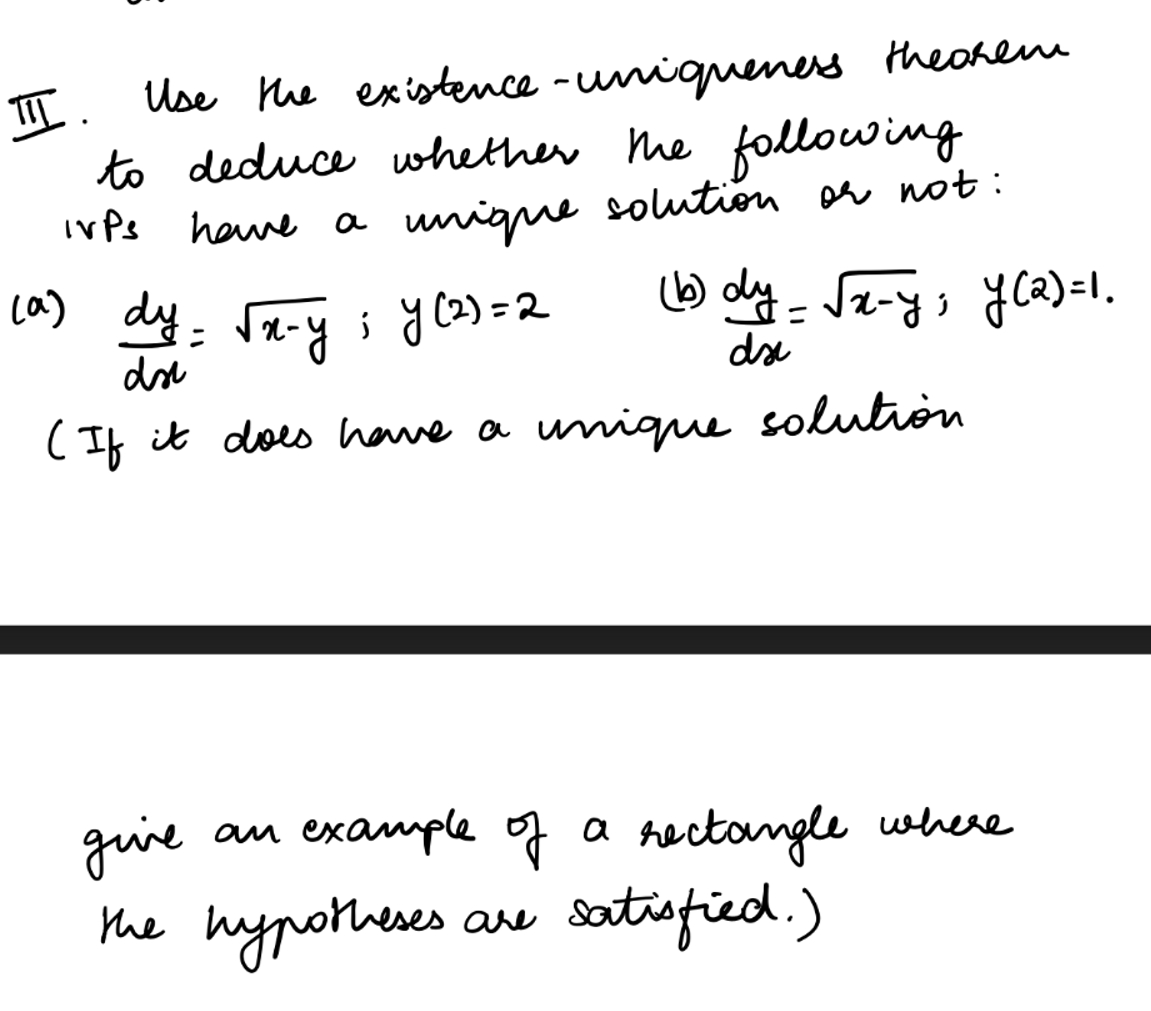 III. Use the existence-uniqueness theorem
to deduce whether the following
IVPs have a unique solution or not:
(a) dy/dx = √x-y ; y(2)=2 (b) dy/dx = √x-y ; y(2)=1.
(If it does have a unique solution
give an example of a rectangle where
the hypotheses are satisfied.)